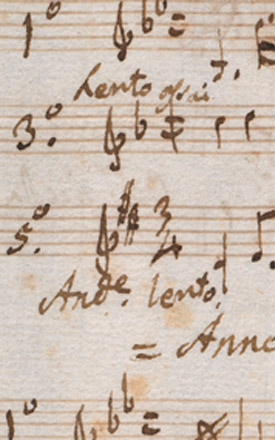 1º
Lento assai
3º.
5º. 3/4
Andᵉ. lento.
= Anno